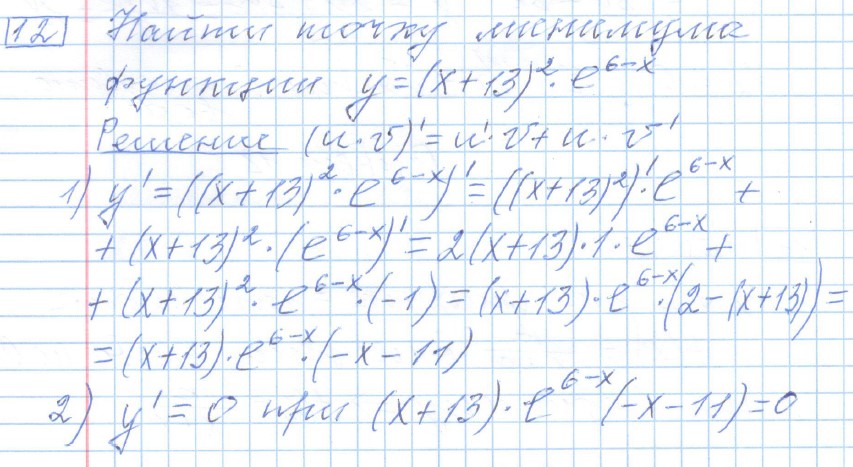 12 Найти точку минимума
функции y=(x+13)²·e^(6-x)
Решение (u·v)'=u'·v+u·v'
1) y'=((x+13)²·e^(6-x))'=((x+13)²)'·e^(6-x)+
+(x+13)²·(e^(6-x))'=2(x+13)·1·e^(6-x)+
+(x+13)²·e^(6-x)·(-1)=(x+13)·e^(6-x)·(2-(x+13))=
=(x+13)·e^(6-x)·(-x-11)
2) y'=0 при (x+13)·e^(6-x)(-x-11)=0